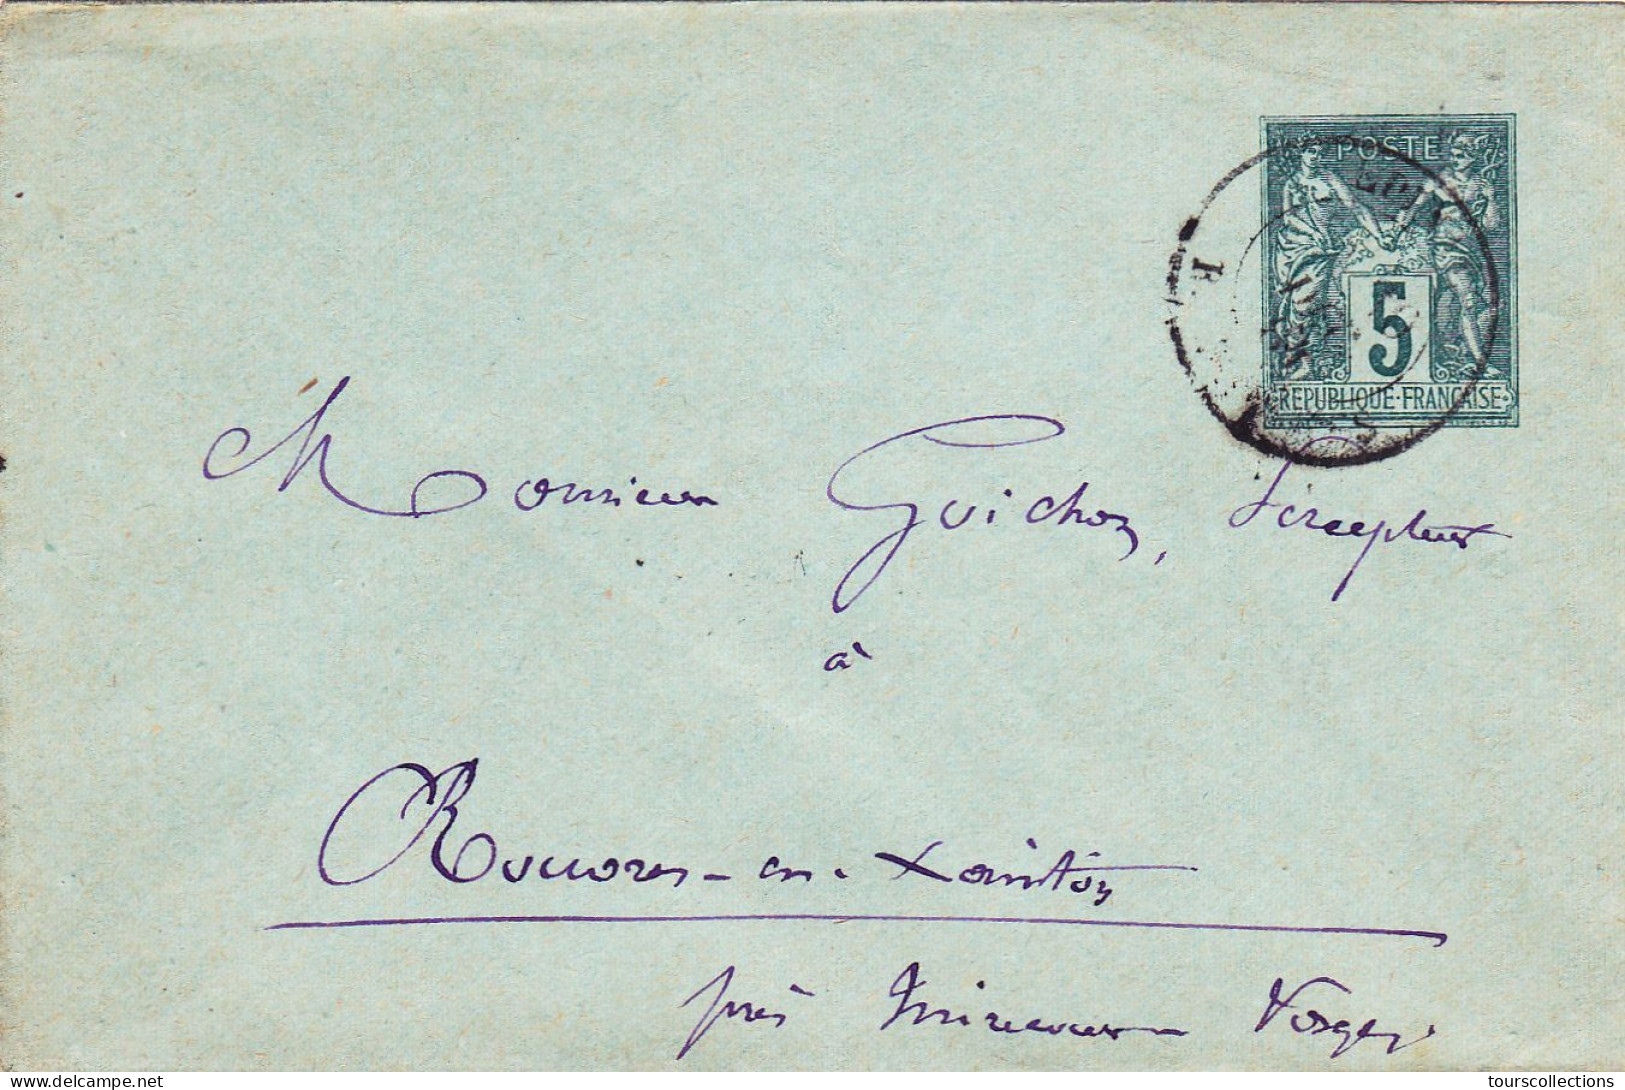 POSTE
5
REPUBLIQUE·FRANÇAISE
Monsieur Guichon, Percepteur
à
Rouvres-en-Xaintois
près Mirecourt Vosges
delcampe.net
tourscollections